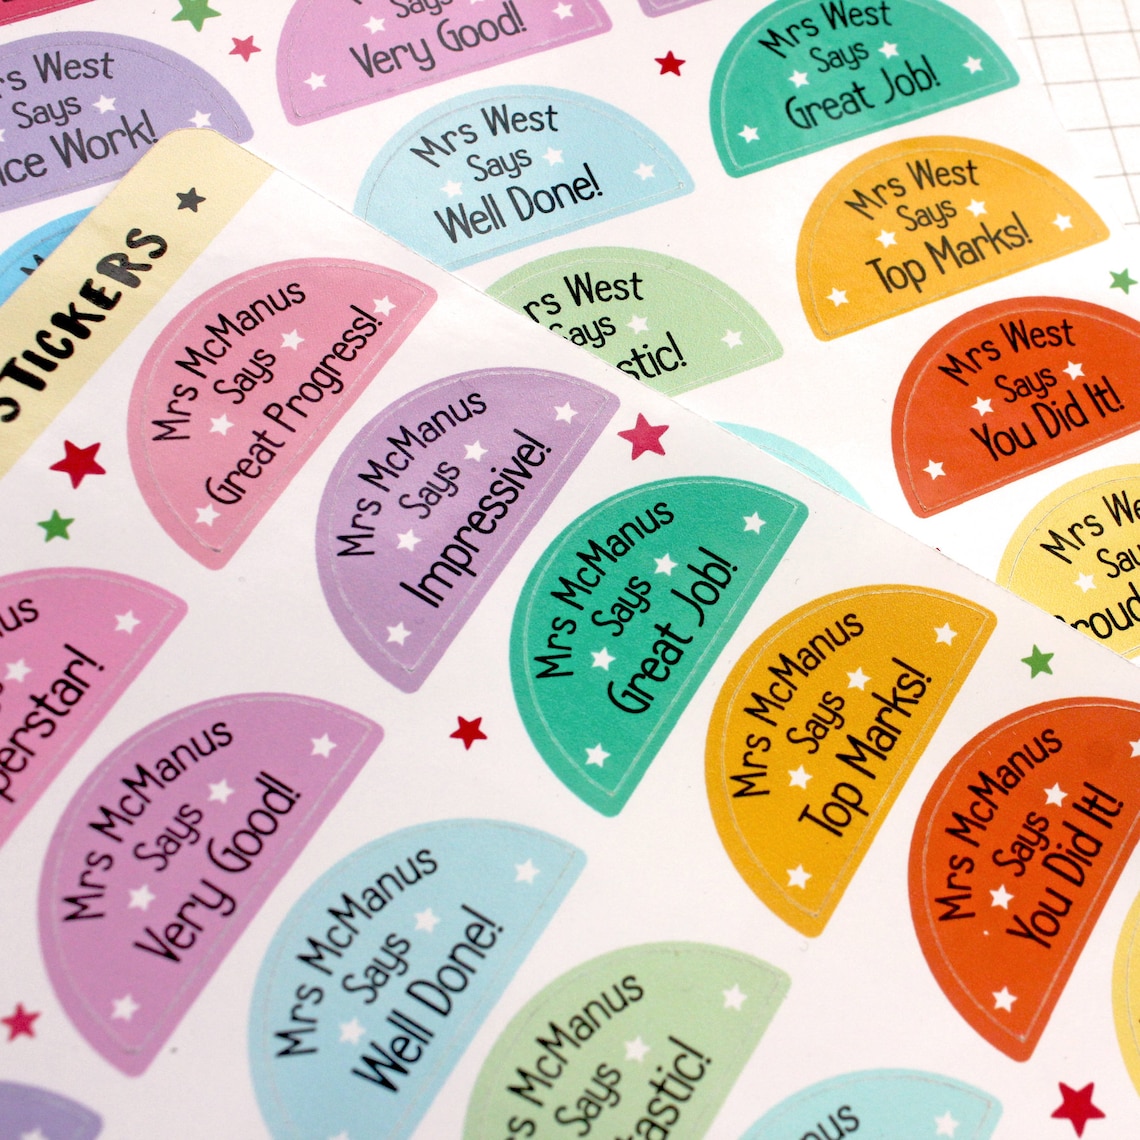 Says
Very Good!
Mrs West
Says
Great Job!
Mrs West
Says
Well Done!
Mrs West
Says
Top Marks!
West
Says
Work!
West
Mrs West
Says
You Did It!
Mrs
STICKERS
Mrs McManus
Says
Great Progress!
Mrs McManus
Says
Impressive!
Mrs McManus
Says
Great Job!
Mrs McManus
Says
Top Marks!
Mrs McManus
Says
You Did It!
Mrs McManus
Says
Very Good!
Mrs McManus
Says
Well Done!
Mrs McManus
Says
Says